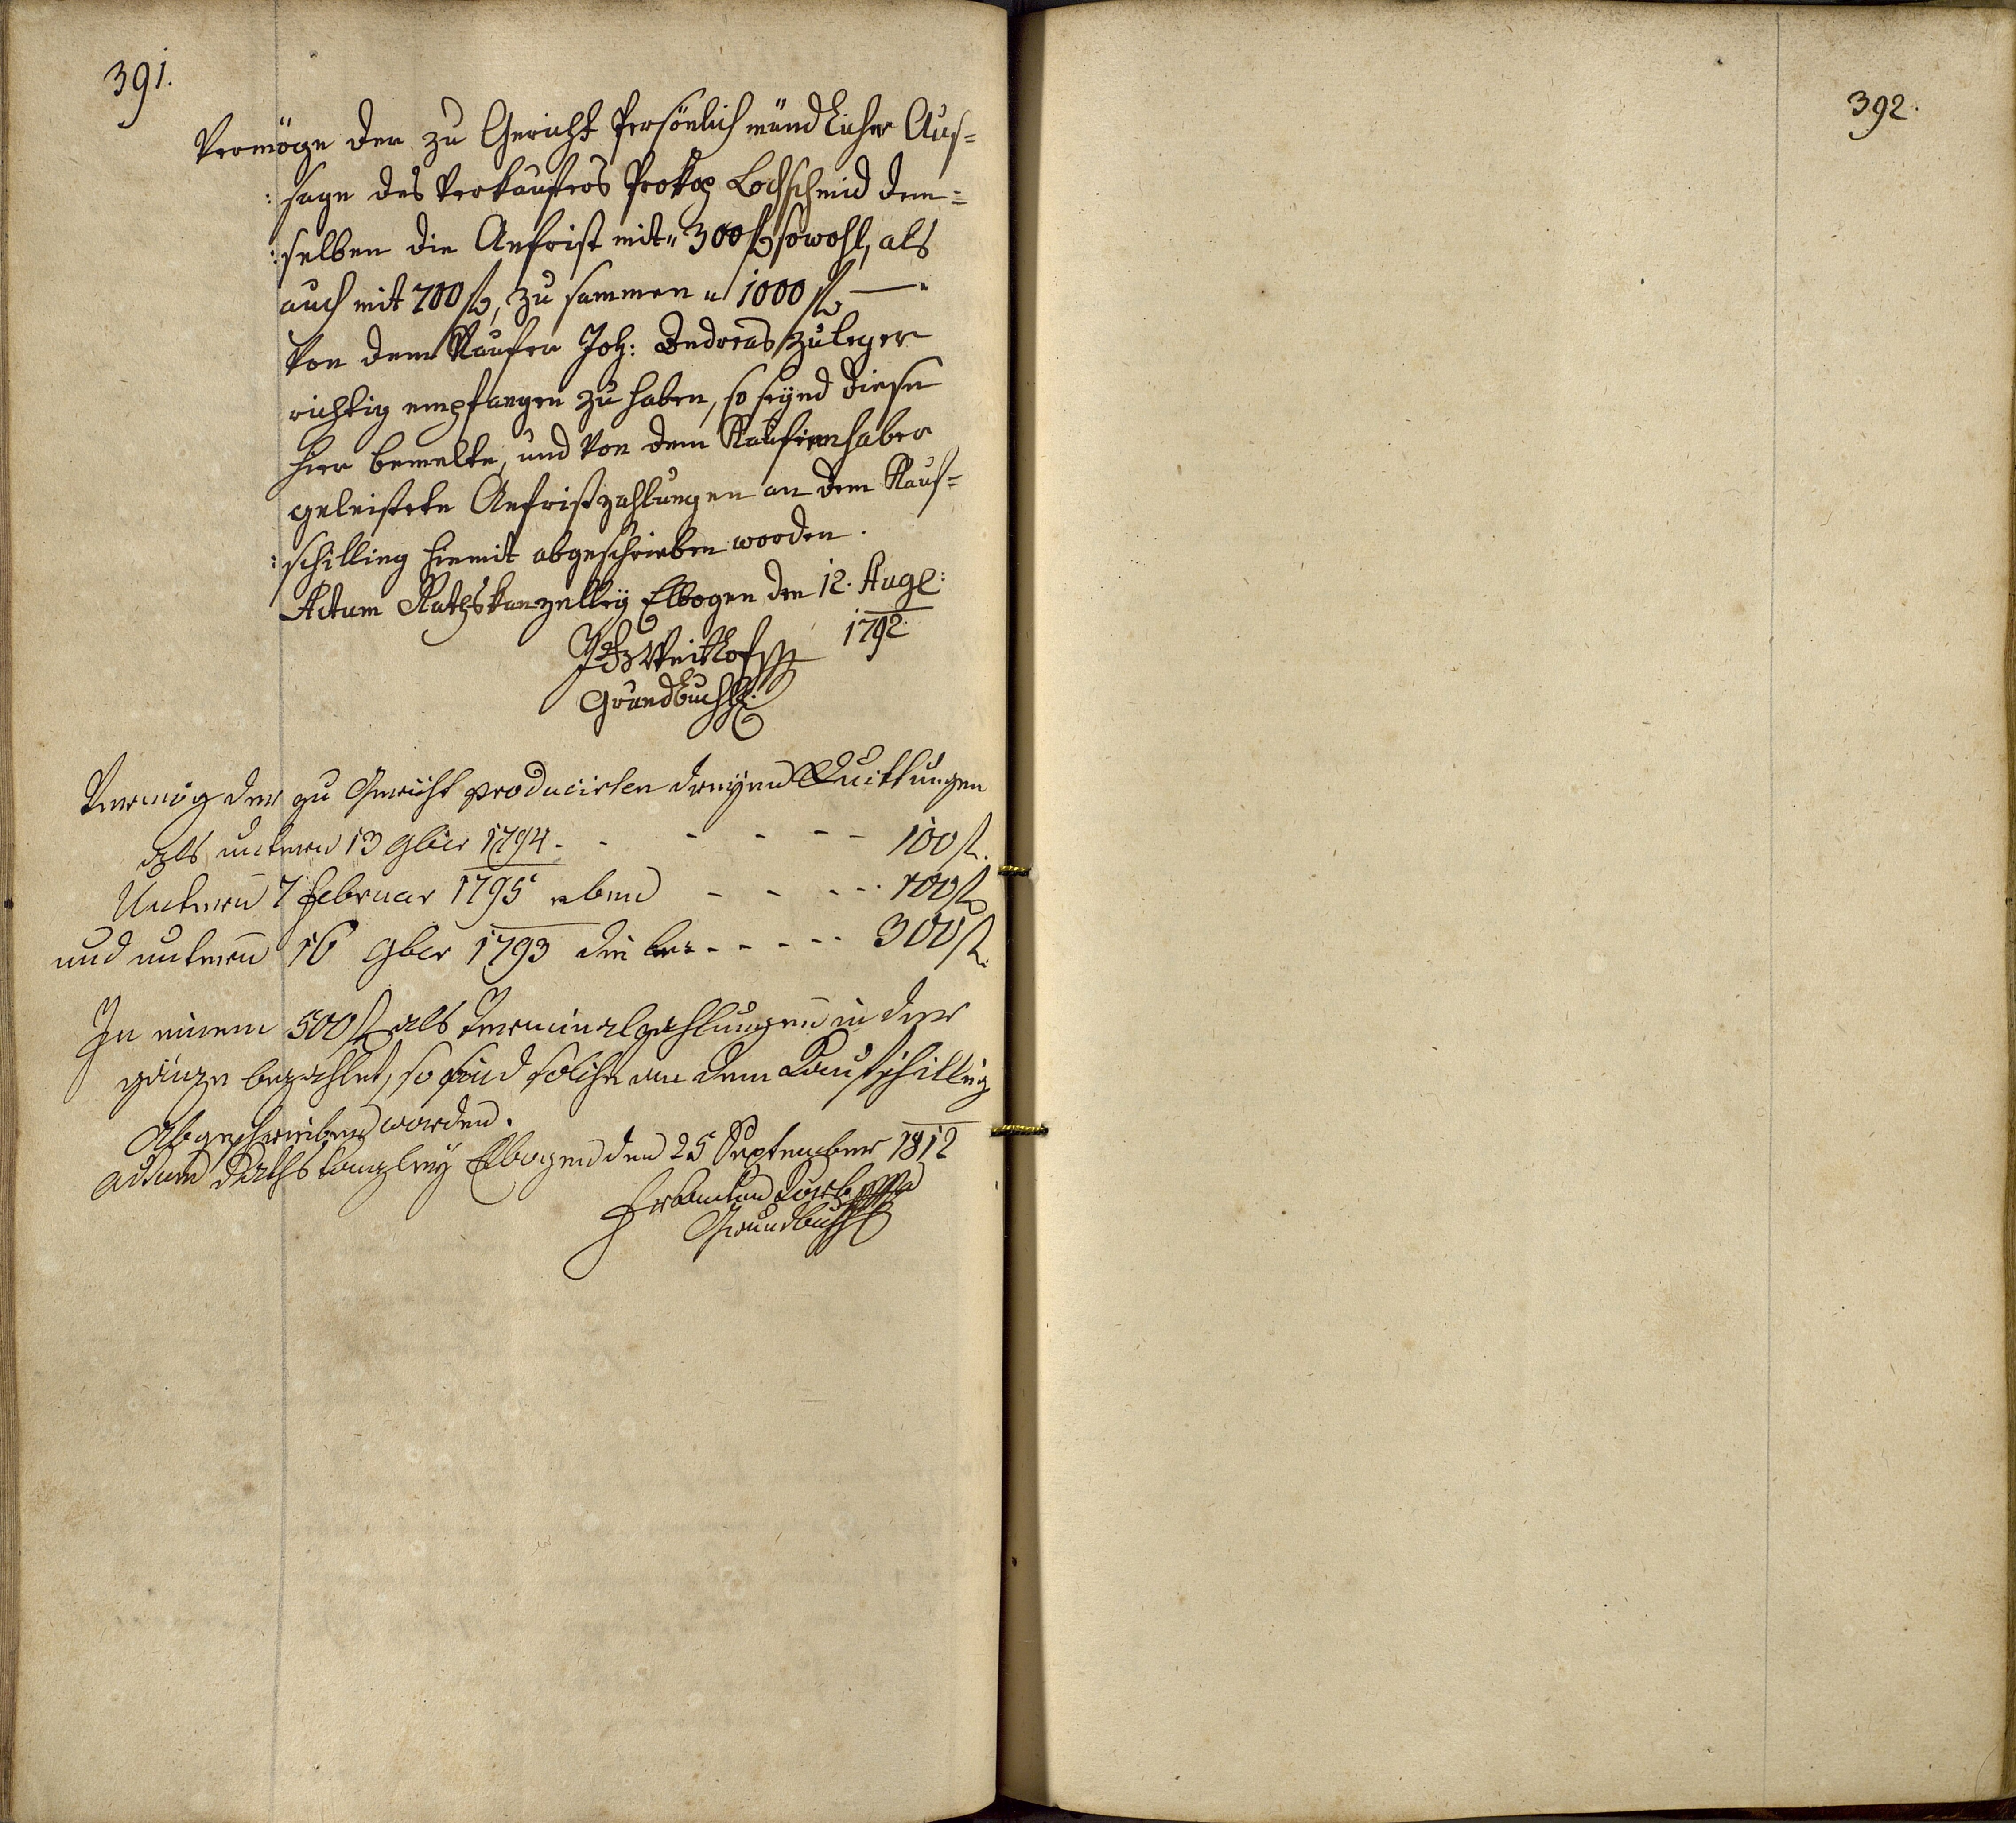 391.
Vermöge der zu Gericht Persönlich mündlicher Aus=
:sage des Verkaufers Prokop Lochschmid dem=
:selben die Anfrist mit" 300 f, sowohl, als
auch mit 700 f, zu sammen " 1000 f —"
Von dem Kaufer Joh: Andreas Zuleger
richtig empfangen zu haben, so seynd diese
hier bemelte, und von dem Kaufinnhaber
geleistete Anfristzahlungen an dem Kauf=
:schilling hiemit abgeschrieben worden.
Actum Rathskanzelley Elbogen den 12. Aug:
1792
Grundbuchf:
Vermög der zu Gericht producirten dreyen Quittungen
als unterm 13 9ber 1794 - - - - - 100 f.
Unterm 7 Februar 1795 eben - - - - 100 f
und unterm 16 9ber 1793 die - - - - - 300 f.
In einem 500 f als Terminalzahlungen in der
gänze bezahlet, so seind solche an dem Kaufschilling
abgeschrieben worden.
actum Rathskanzley Elbogen den 25 September 1812
Grundbuchf
392.